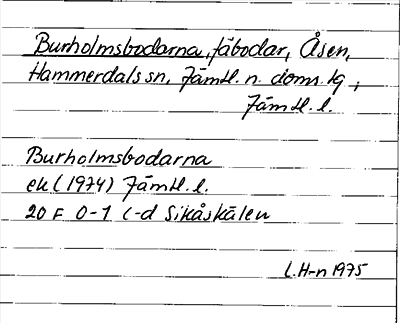 Burholmsbodarna, fäbodar, Åsen,
Hammerdals sn, Jämtl. n. doms. tg,
Jämtl. l.
Burholmsbodarna
ek (1974) Jämtl. l.
20 F 0-1 c-d Sikåskälen
L.H-n 1975